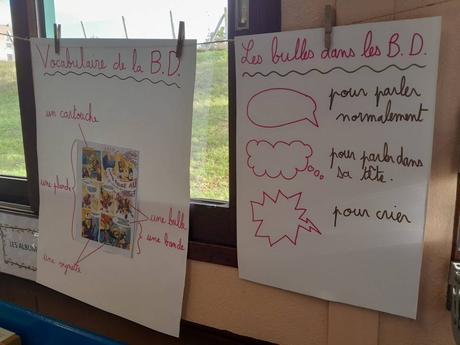 Vocabulaire de la B.D.
un cartouche
une planche
une bulle
une bande
une vignette
Les bulles dans les B.D.
pour parler
normalement
pour parler dans
sa tête.
pour crier
LES ALBUMS